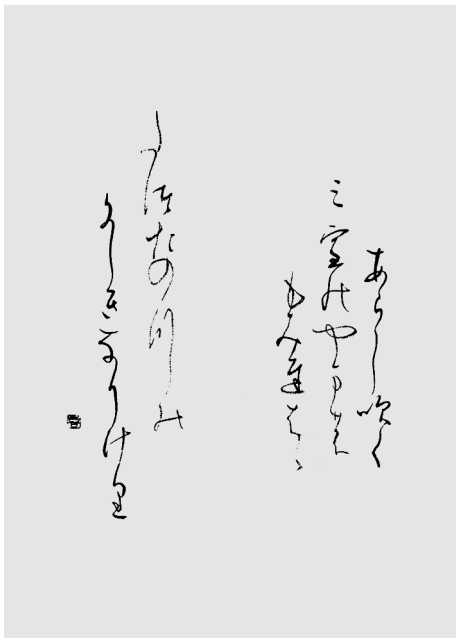 あらし吹く
三室のやまの
もみぢはゝ
たつたの川の
にしきなりけり